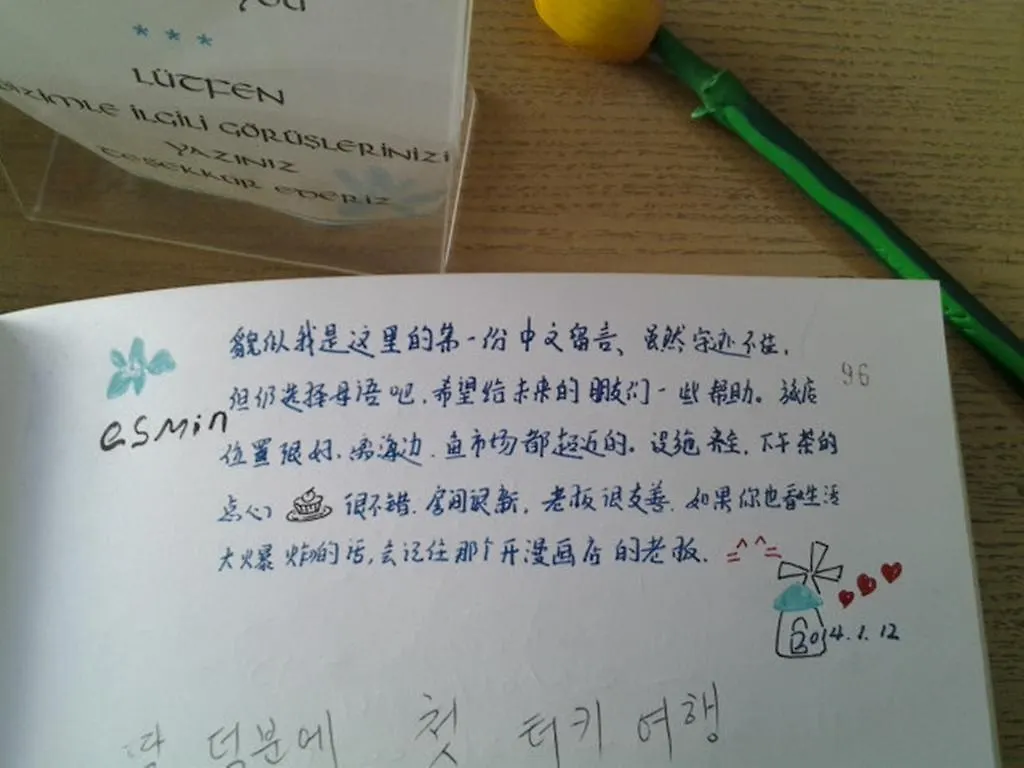 YOU
* * *
LÜTFEN
BİZİMLE İLGİLİ GÖRÜŞLERİNİZİ
YAZINIZ
TEŞEKKÜR EDERİZ
貌似我是这里的第一份中文留言、虽然字迹不佳,
96
但仍选择母语吧,希望给未来的朋友们一些帮助。旅店
esmin
位置很好、离海边、鱼市场都超近的。设施齐全,下午茶的
点心 很不错,房间很新,老板很友善,如果你也看生活
大爆炸的话,会记住那个开漫画店的老板. =^^=
2014.1.12
딸 덕분에 첫 터키 여행